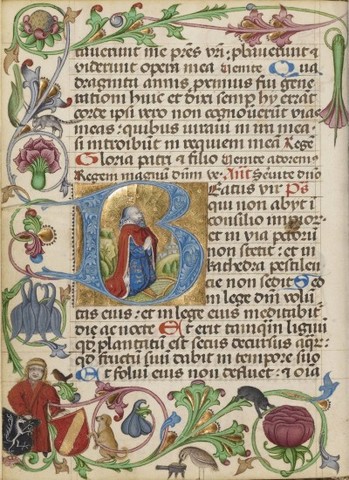 tauerunt me prēs vr̄i: ꝓbauerunt ⁊
viderunt opera mea Uenite Qua
draginta annis proximus fui gene
rationi huic et dixi semp hij errāt
corde ipsi vero non cognouerunt vias
meas: quibus iuraui in ira mea
si introibūt in requiem meā Regē
Gloria patri ⁊ filio Uenite adorem⁹
Regem magnū dn̄m ve. Ant Seruite dn̄o
Beatus vir Ps
qui non abijt ī
consilio impior⁊
et in via pctorū
non stetit: et in
cathedra pestilen
cie non sedit Sed
in lege dn̄i volū
tas eius: et in lege eius meditabit̄
die ac nocte Et erit tamq̄m lignū
qd̄ plantatū est secus decursus aqr⁊:
qd̄ fructū suū dabit in tempore suo
Et foliū eius non defluet: ⁊ oīa